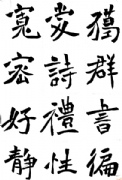 獵群書徧
愛詩禮性
寬密好靜